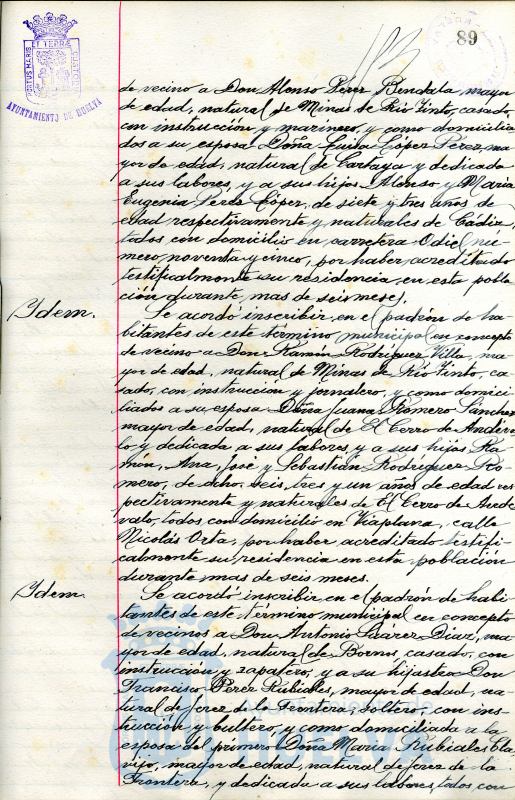 89
PORTUS MARIS ET TERRAE CUSTODIA
AYUNTAMIENTO DE HUELVA
de vecino a Don Alonso Pérez Bendala, mayor
de edad, natural de Minas de Rio Tinto, casado,
con instrucción y marinero, y como domicilia
dos a su esposa Doña Luisa López Pérez, ma
yor de edad, natural de Cartaya y dedicada
a sus labores, y a sus hijos Alonso y Maria
Eugenia Perez López, de siete y tres años de
edad respectivamente y naturales de Cádiz,
todos con domicilio en carretera Odiel nú-
mero, noventa y cinco, por haber acreditado
testificalmente su residencia en esta pobla
ción durante mas de seis meses.
Ydem.
Se acordó inscribir en el padrón de ha-
bitantes de este término municipal en concepto
de vecino a Don Ramón Rodriguez Villa, ma
yor de edad, natural de Minas de Rio Tinto, ca
sado, con instrucción y jornalero, y como domici
liados a su esposa Doña Juana Romero Sanchez
mayor de edad, natural de El Cerro de Andéva
lo y dedicada a sus labores y a sus hijos Ra
món, Ana, José y Sebastián Rodriguez Ro-
mero, de ocho, seis, tres y un años de edad res
pectivamente y naturales de El Cerro de Ande
valo, todos con domicilio en Viaplana, calle
Nicolás Orta, por haber acreditado testifi-
calmente su residencia en esta población
durante mas de seis meses.
Ydem.
Se acordó inscribir en el padrón de habi
tantes de este término municipal en concepto
de vecinos a Don Antonio Suarez Diaz, ma
yor de edad, natural de Bornos, casado, con
instrucción y zapatero, y a su hijastro Don
Francisco Perez Rubiales, mayor de edad, na-
tural de Jerez de la Frontera, soltero con ins-
trucción y bultero, y como domiciliada a la
esposa del primero Doña Maria Rubiales Cla
vijo, mayor de edad, natural de Jerez de la
Frontera, y dedicada a sus labores, todos con